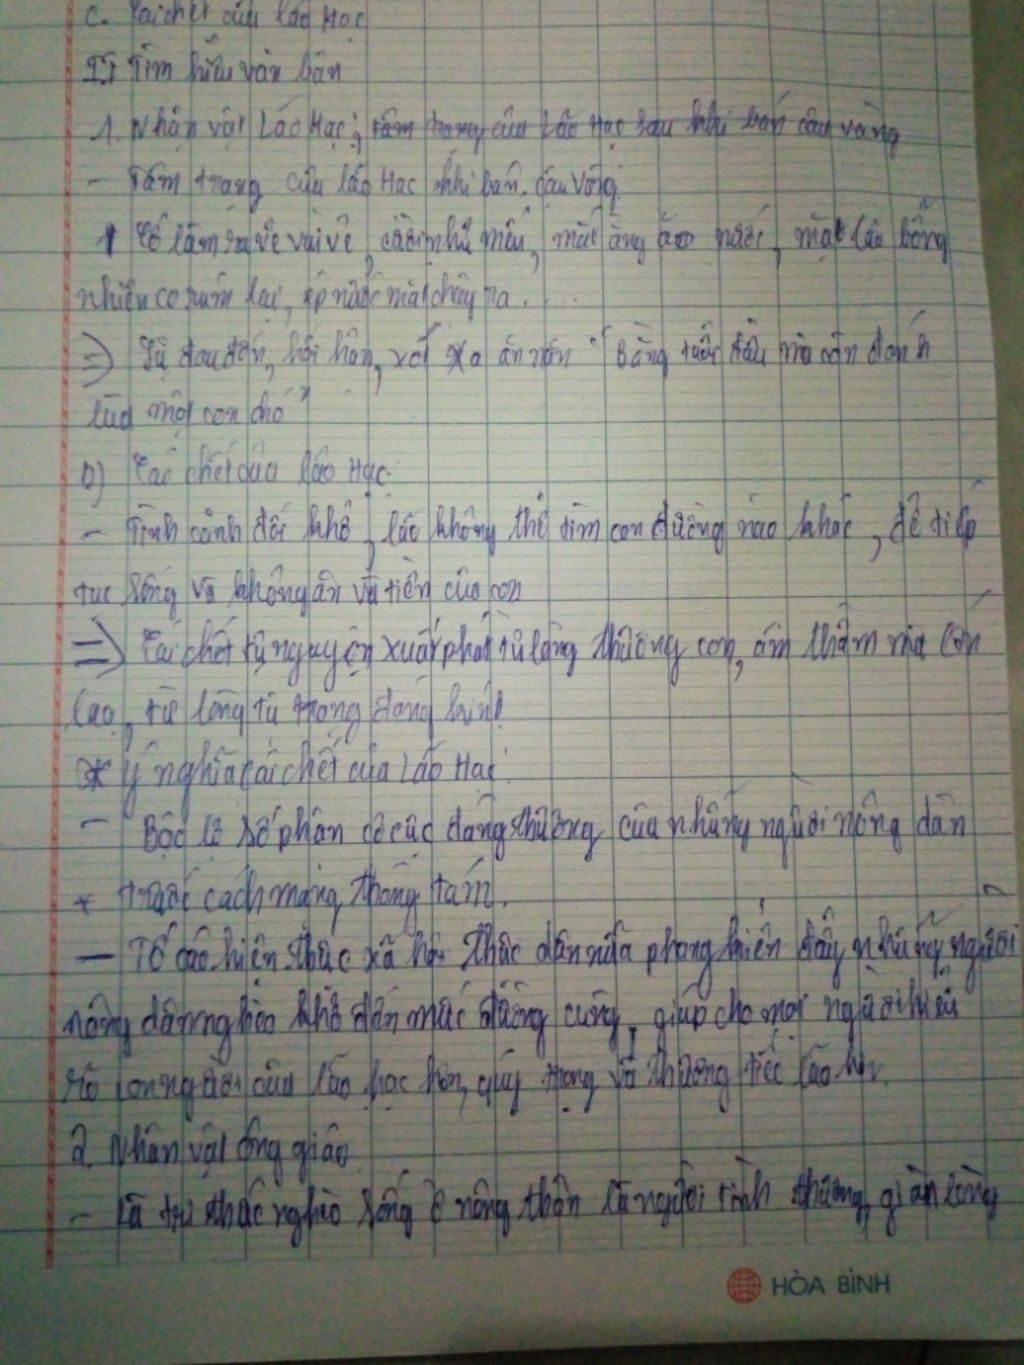 c. Cái chết của lão Hạc
II Tìm hiểu văn bản
1. Nhân vật Lão Hạc; tâm trạng của Lão Hạc sau khi bán cậu vàng
- Tâm trạng của lão Hạc khi bán cậu vàng.
Cố làm ra vẻ vui vẻ, cười như mếu, mắt ầng ậc nước, mặt lão bỗng
nhiên co rúm lại, ép nước mắt chảy ra....
=> Sự đau đớn, hối hận, xót xa ân hận "Bằng tuổi đầu mà còn đánh
lừa một con chó"
b) Cái chết của lão Hạc.
- Tình cảnh đói khổ, lão không thể tìm con đường nào khác, để tiếp
tục sống và không ăn và tiền của con
=> Cái chết tự nguyện xuất phát từ lòng thương con, âm thầm mà lớn
lao, từ lòng tự trọng đáng kính
* Ý nghĩa cái chết của Lão Hạc:
- Bộc lộ số phận cơ cực đáng thương của những người nông dân
trước cách mạng tháng tám.
- Tố cáo hiện thực xã hội thực dân nửa phong kiến đẩy những người
nông dân nghèo khổ đến mức đường cùng, giúp cho mọi người hiểu
rõ con người của lão hạc hơn, quý trọng và thương tiếc lão hơn.
2. Nhân vật ông giáo
- Là tri thức nghèo sống ở nông thôn là người tình thương, giàu lòng
HÒA BÌNH